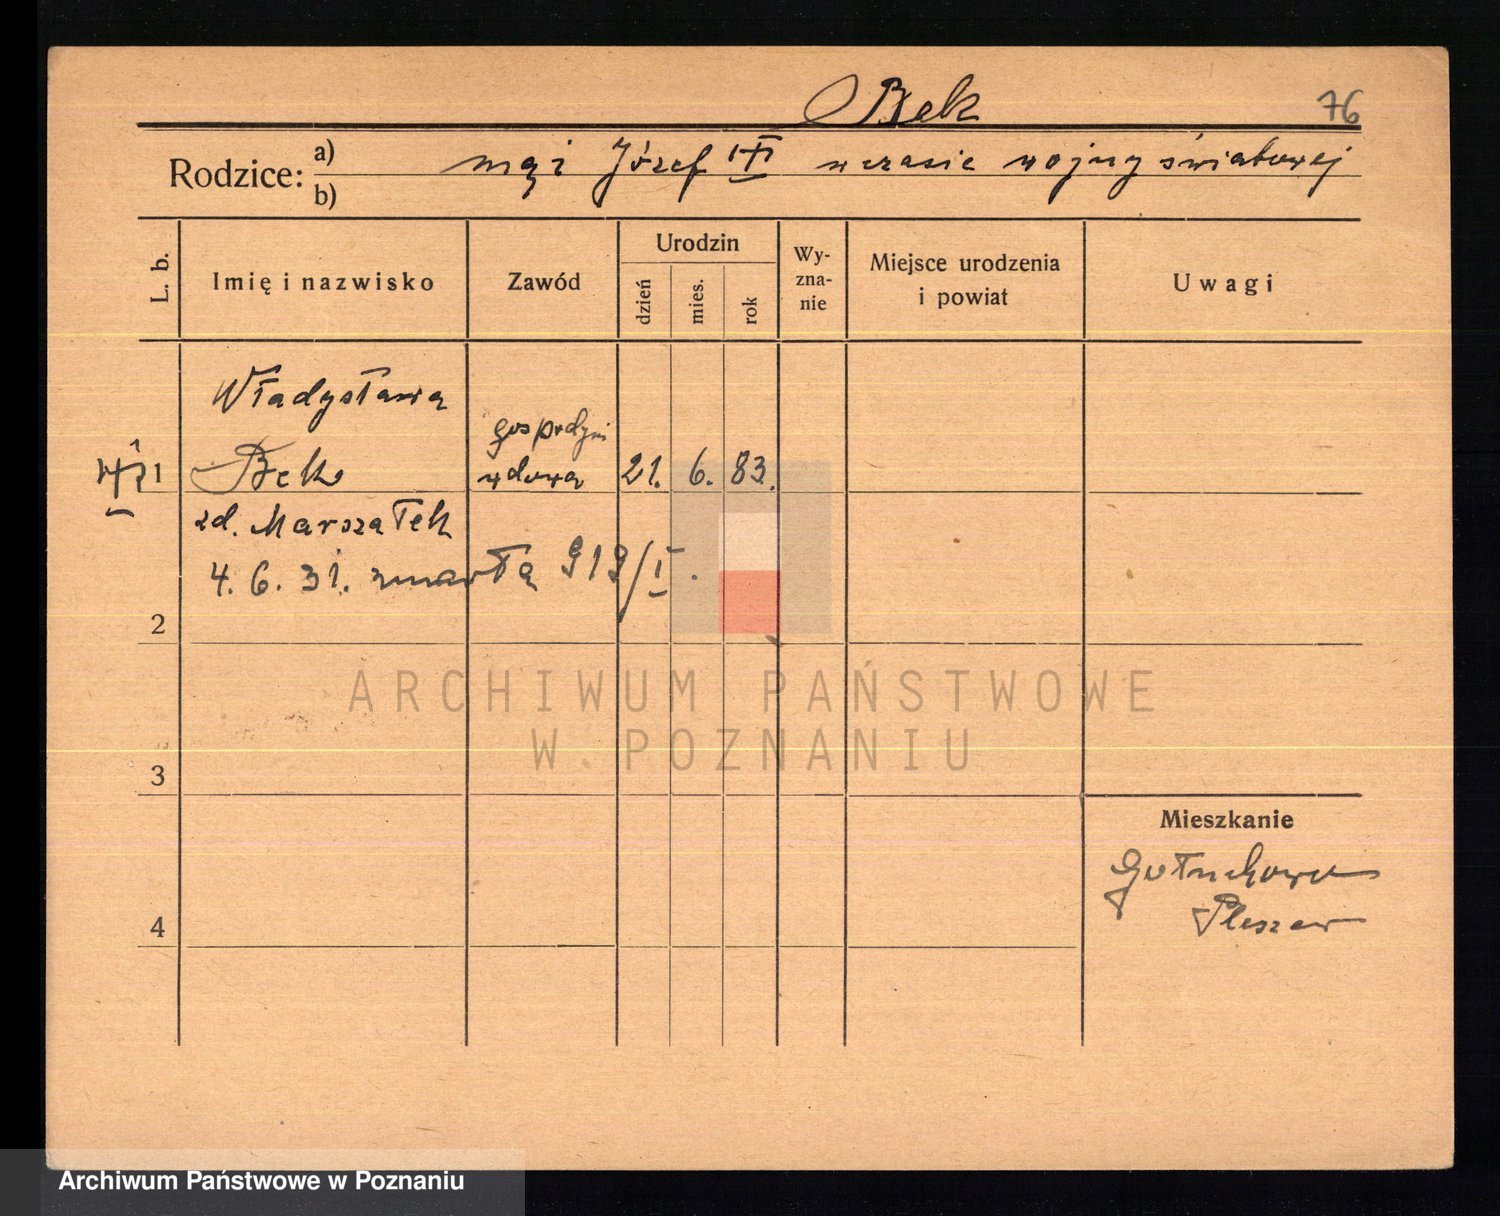 Bek
76
Rodzice: a) b) mąż Józef w czasie wojny światowej
L. b.
Imię i nazwisko
Zawód
Urodzin
dzień
mies.
rok
Wy-
zna-
nie
Miejsce urodzenia
i powiat
Uwagi
Władysława
gospodyni
1 Bek wdowa 21. 6. 83.
zd. Marszałek
4. 6. 31. zmarła 919/I.
2
ARCHIWUM PAŃSTWOWE
W POZNANIU
3
Mieszkanie
Gołuchowa
Pleszew
4
Archiwum Państwowe w Poznaniu